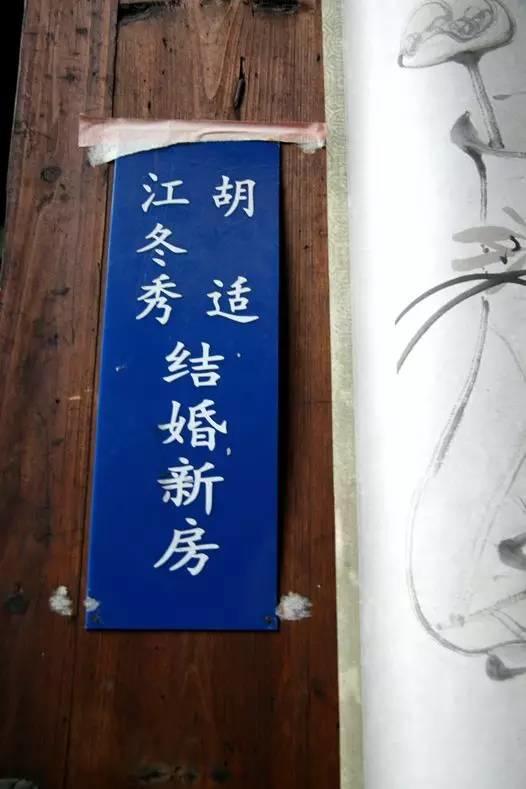 胡适
江冬秀
结婚新房